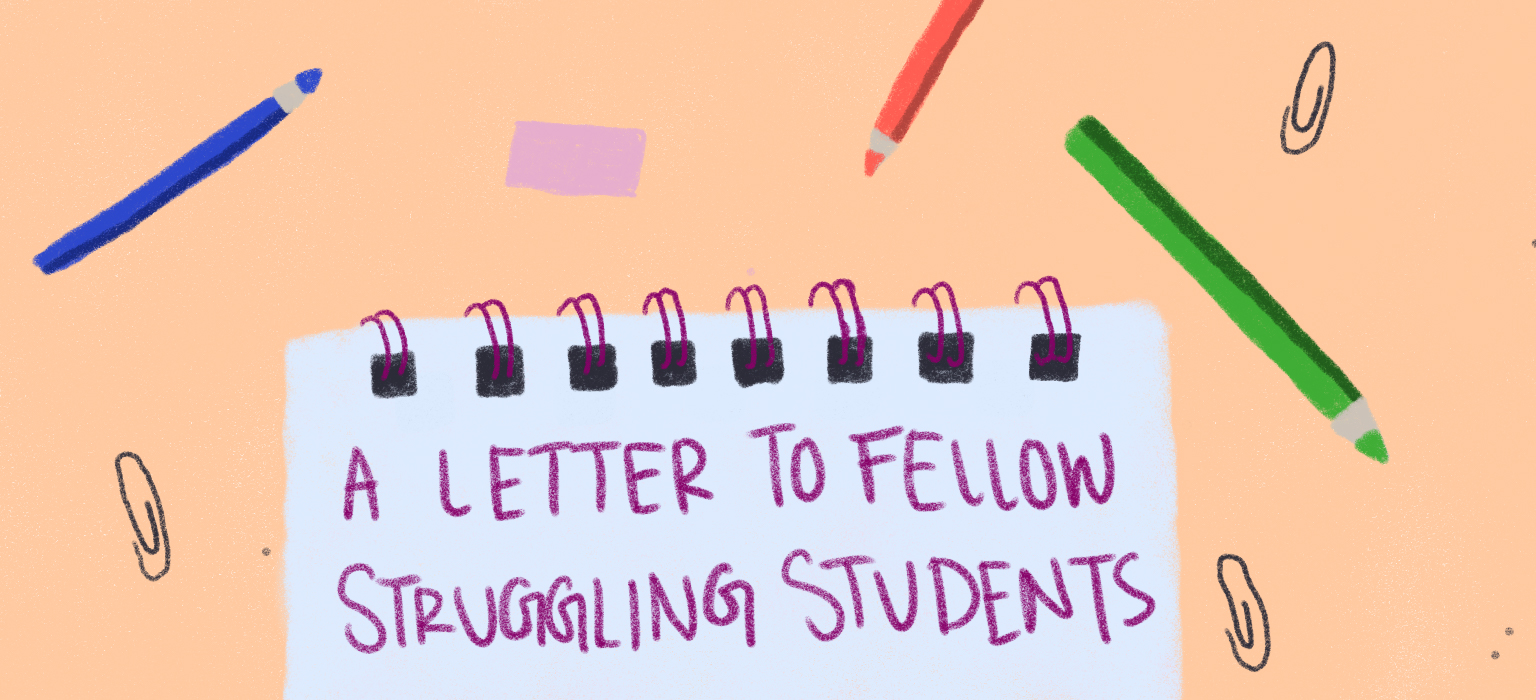 A LETTER TO FELLOW
STRUGGLING STUDENTS